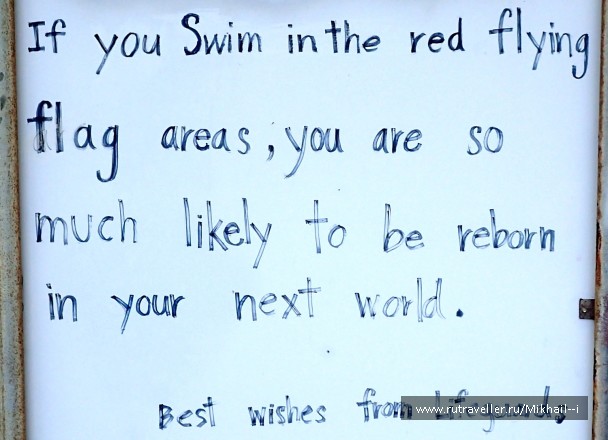 If you Swim in the red flying
flag areas, you are so
much likely to be reborn
in your next world.
Best wishes from Lifeguards
www.rutraveller.ru/Mikhail--i